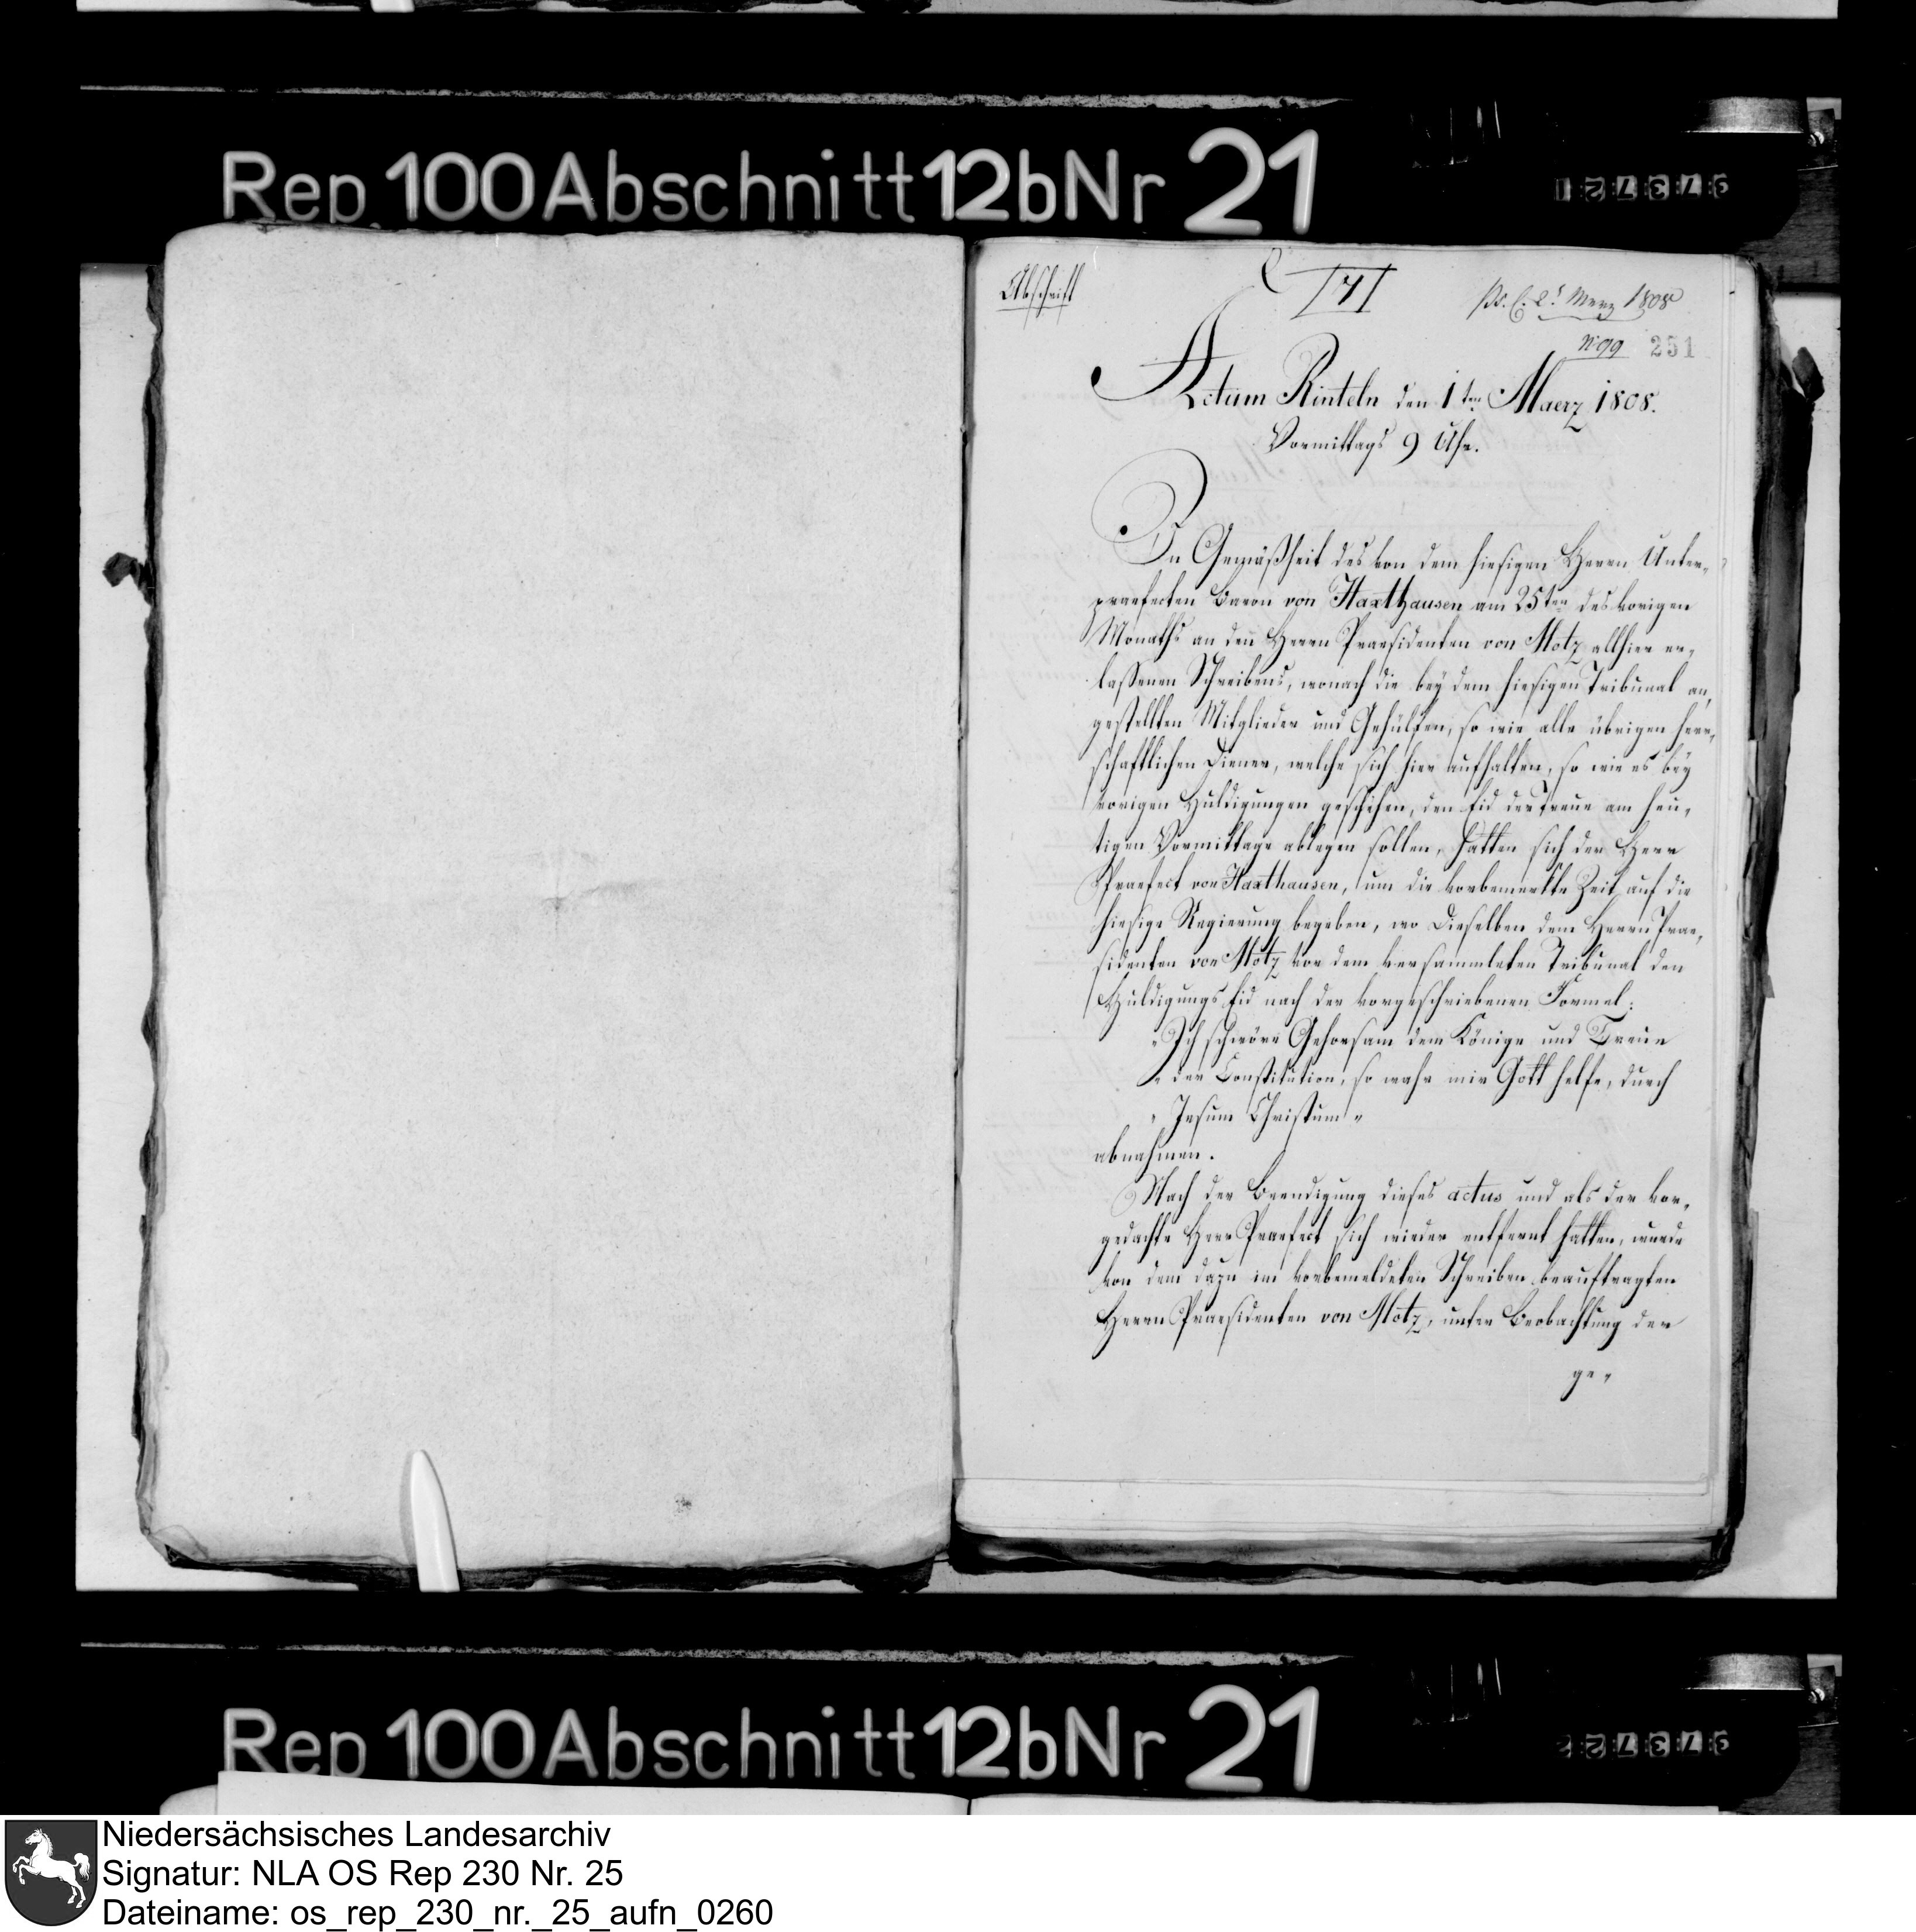 Rep. 100 Abschnitt 12b Nr 21
973721
Abschrift
ps. C. 2t Merz 1808
N 99
251
Actum Rinteln den 1ten Maerz 1808.
Vormittags 9 Uhr.
In Gemäßheit des von dem hiesigen Herrn Unter-
praefecten Baron von Haxthausen am 25ten des vorigen
Monaths an den Herrn Praesidenten von Motz allhier er-
laßenen Schreibens, wonach die bey dem hiesigen Tribunal an-
gestellten Mitglieder und Gehülfen, so wie alle übrigen herr-
schaftlichen Diener, welche sich hier aufhalten, so wie es bey
vorigen Huldigungen geschehen, den Eid der Treue am heu-
tigen Vormittage ablegen sollen, hatten sich der Herr
Praefect von Haxthausen, um die vorbemerkte Zeit auf die
hiesige Regierung begeben, wo Dieselben dem Herrn Prae-
sidenten von Motz vor dem versammleten Tribunal den
Huldigungs Eid nach der vorgeschriebenen Formel:
"Ich schwöre Gehorsam dem Könige und Treue
"der Constitution, so wahr mir Gott helfe, durch
"Jesum Christum"
abnahmen.
Nach der Beendigung dieses actus und als der vor-
gedachte Herr Praefect sich wieder entfernt hatten, wurde
von dem dazu im vorbemeldeten Schreiben beauftragten
Herrn Praesidenten von Motz, unter Beobachtung der
ge-
Rep. 100 Abschnitt 12b Nr 21
973722
Niedersächsisches Landesarchiv
Signatur: NLA OS Rep 230 Nr. 25
Dateiname: os_rep_230_nr._25_aufn_0260